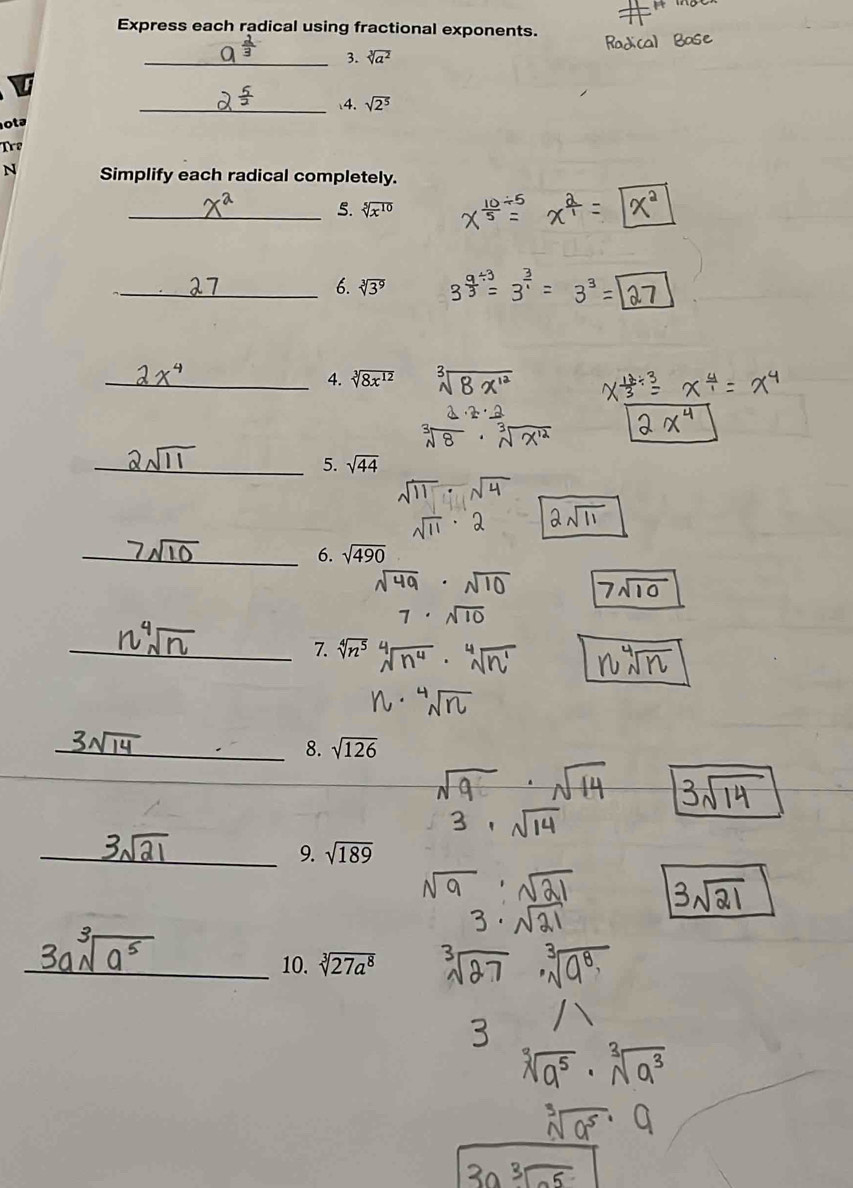 Express each radical using fractional exponents.
Radical Base
a^{\frac{2}{3}} 3. ∛a²
2^{\frac{5}{2}} 4. √2⁵
ota
Tra
N
Simplify each radical completely.
x² 5. ⁵√x¹⁰ x^{\frac{10}{5}÷5} = x^{\frac{2}{1}} = x²
27 6. ∛3⁹ 3^{\frac{9}{3}÷3} = 3^{\frac{3}{1}} = 3³ = 27
2x⁴ 4. ∛8x¹² ∛8x¹² x^{\frac{12}{3}÷3} = x^{\frac{4}{1}} = x⁴
2·2·2
∛8 · ∛x¹² 2x⁴
2√11 5. √44
√11 · √4
√11 · 2 2√11
7√10 6. √490
√49 · √10 7√10
7 · √10
n⁴√n 7. ⁴√n⁵ ⁴√n⁴ · ⁴√n¹ n⁴√n
n · ⁴√n
3√14 8. √126
√9 · √14 3√14
3 · √14
3√21 9. √189
√9 · √21 3√21
3 · √21
3a∛a⁵ 10. ∛27a⁸ ∛27 · ∛a⁸
3
∛a⁵ · ∛a³
∛a⁵ · a
3a∛a⁵